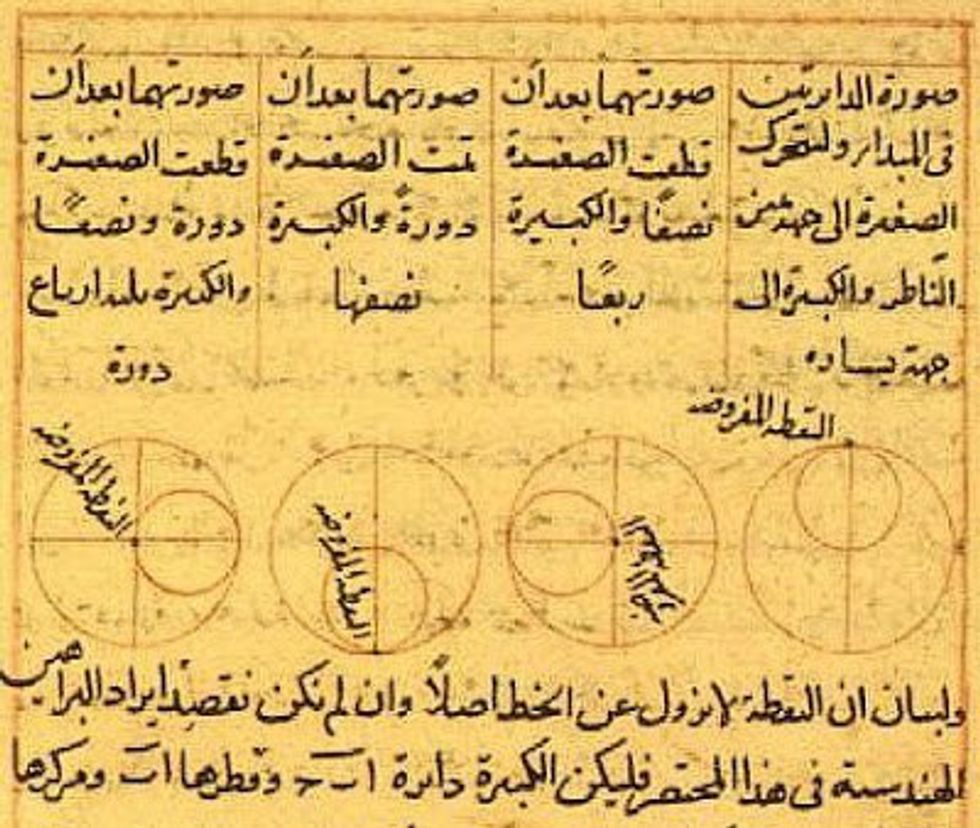 صورة الدايرتين
فى المبدا، ولتتحرك
الصغيرة الى جهة يمين
الناظر والكبيرة الى
جهة يساره
صورتهما بعد أن
قطعت الصغيرة
نصفًا والكبيرة
ربعًا
صورتهما بعد أن
تمت الصغيرة
دورةً والكبيرة
نصفها
صورتهما بعد أن
قطعت الصغيرة
دورة ونصفًا
والكبيرة ثلثة ارباع
دورة
النقطة المفروضة
النقطة المفروضة
النقطة المفروضة
ولبيان ان النقطة لا تزول عن الخط اصلاً وان لم نكن نقصد ايراد البراهين
الهندسية فى هذا المختصر فليكن الكبيرة دائرة ا ب ح وقطرها ا ب ومركزها